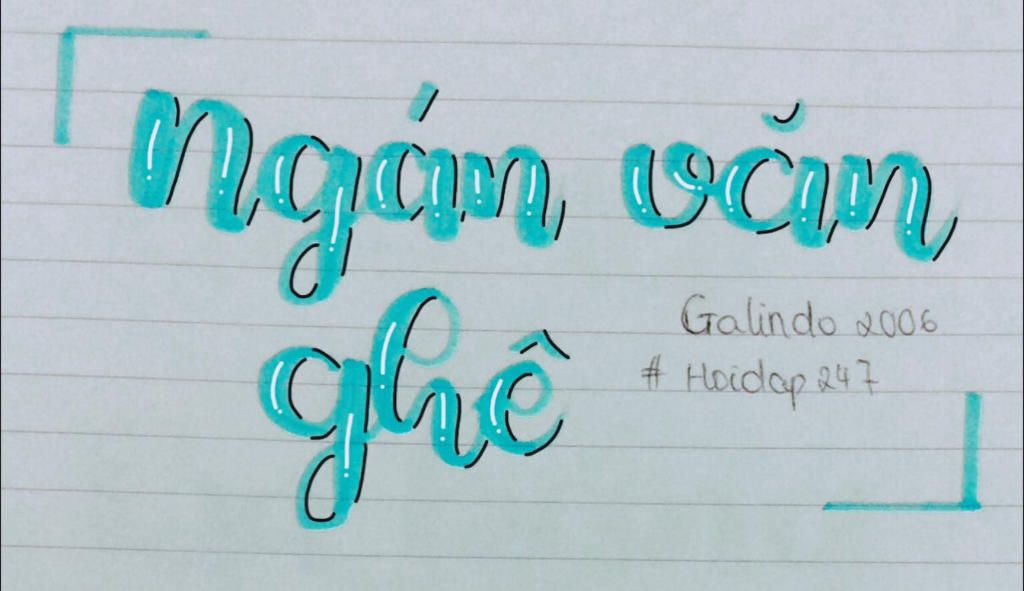 Ngán văn
ghê
Galindo 2006
# Hoidap 247